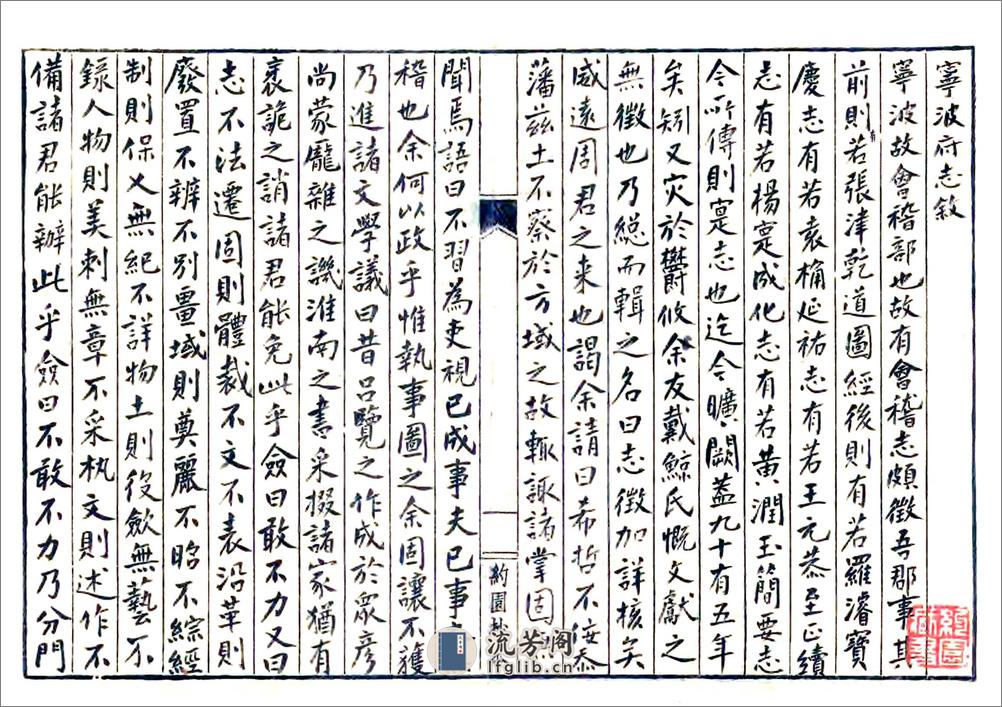 寧波府志敘
寧波故會稽部也故有會稽志頗徵吾郡事其
前則有若張津乾道圖經後則有若羅濬寶
慶志有若袁桷延祐志有若王元恭至正續
志有若楊寔成化志有若黃潤玉簡要志
今所傳則寔志也迄今曠闕蓋九十有五年
矣矧又灾於欝攸余友戴鯨氏慨文獻之
無徵也乃緫而輯之名曰志徵加詳核矣
威遠周君之来也謁余請曰希哲不佞忝
藩茲土不察於方域之故輒諏諸掌固
約園
聞焉語曰不習為吏視已成事夫已事
稽也余何以政乎惟執事圖之余固讓不獲
乃進諸文學議曰昔呂覽之作成於眾彦
尚蒙龐雜之譏淮南之書采掇諸家猶有
袤詭之誚諸君能免此乎僉曰敢不力又曰
志不法遷固則體裁不文不表沿革則
廢置不辨不別畺域則奠麗不昭不綜經
制則保乂無紀不詳物土則役斂無藝不
錄人物則美刺無章不采执文則述作不
備諸君能辦此乎僉曰不敢不力乃分門
約園藏書
流芳阁
lfglib.cn